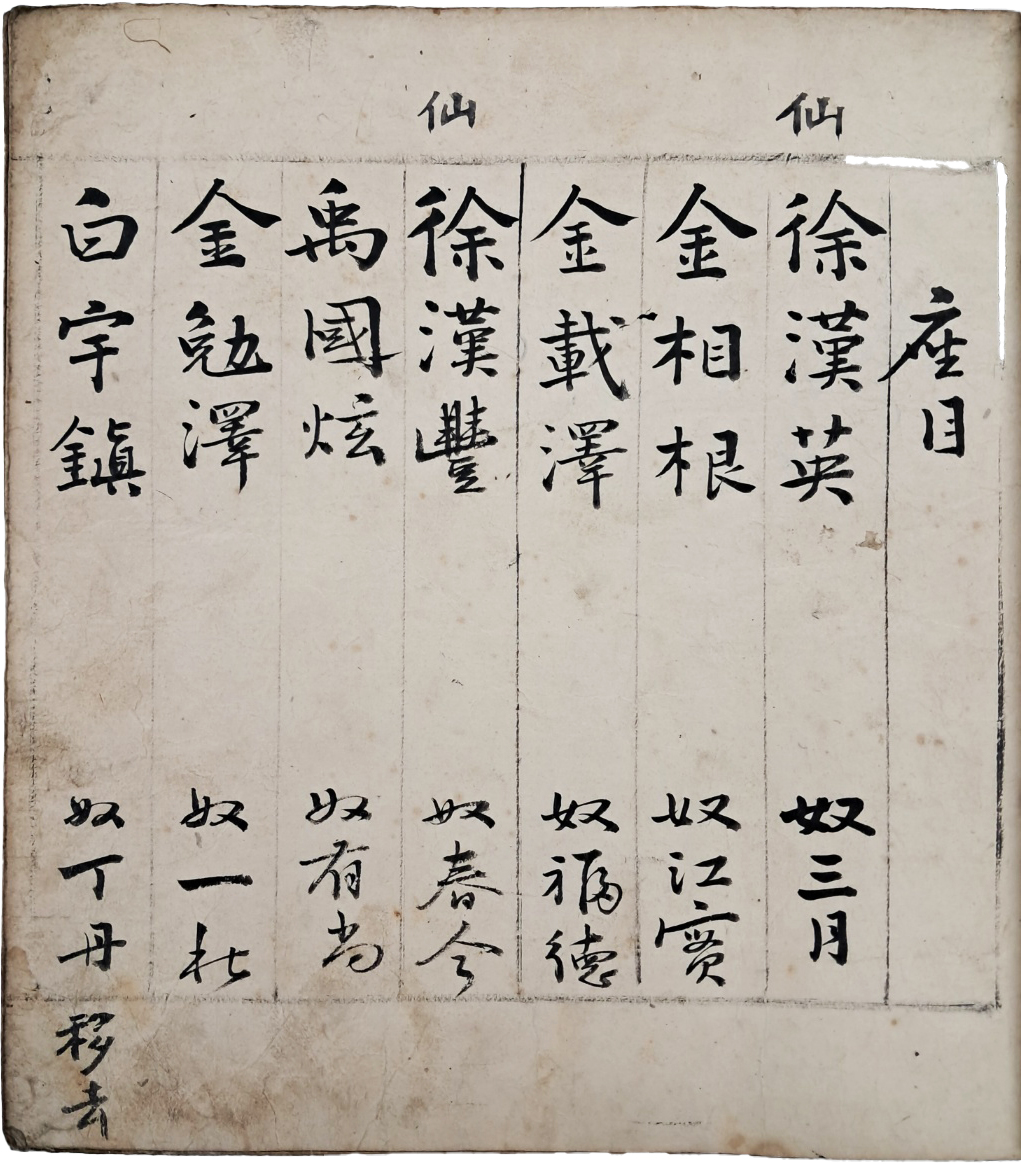 座目
仙
徐漢英 奴三月
金相根 奴江實
金載澤 奴福德
仙
徐漢豐 奴春今
禹國炫 奴有尚
金勉澤 奴一
白宇鎮 奴丁丹 移去